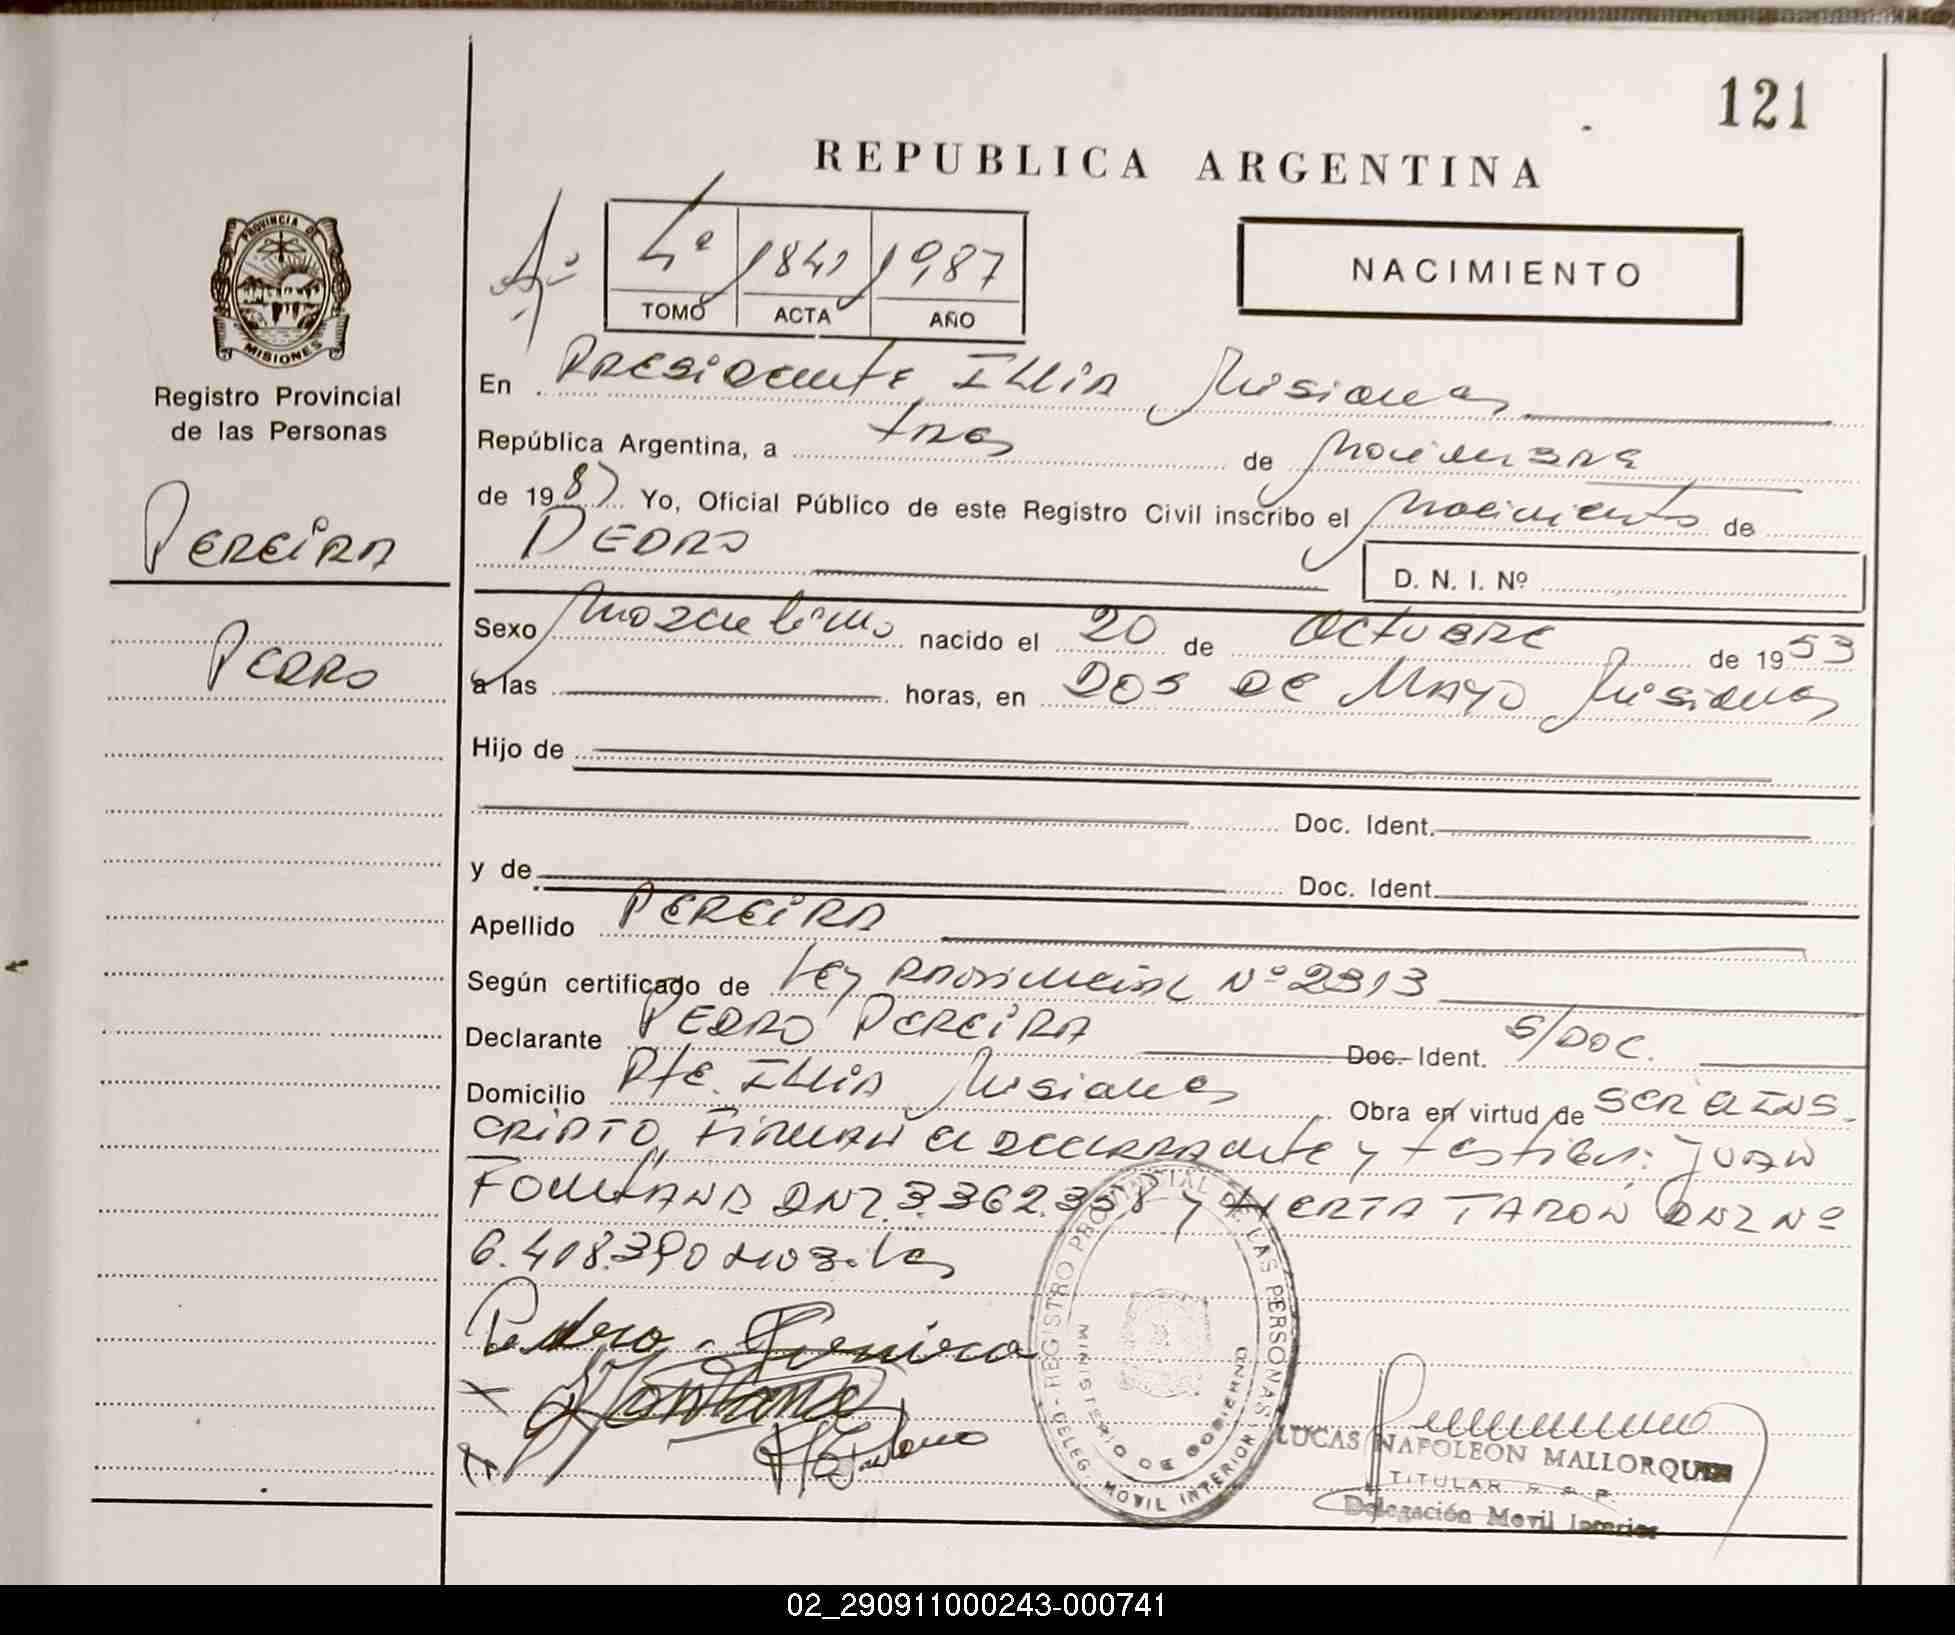 121
REPUBLICA ARGENTINA
4º 1841 1987
TOMO ACTA AÑO
NACIMIENTO
PROVINCIA DE
MISIONES
Registro Provincial
de las Personas
PEREIRA
PEDRO
En PRESIDENTE ILLIA Misiones
República Argentina, a tres de Noviembre
de 1987 Yo, Oficial Público de este Registro Civil inscribo el nacimiento de
PEDRO
D. N. I. Nº
Sexo masculino nacido el 20 de OCTUBRE de 1953
a las horas, en DOS DE MAYO Misiones
Hijo de
Doc. Ident.
y de Doc. Ident.
Apellido PEREIRA
Según certificado de Ley PROVINCIAL Nº 2313
Declarante PEDRO PEREIRA Doc. Ident. S/DOC.
Domicilio Pte. ILLIA Misiones Obra en virtud de SER EL INS-
CRIPTO, FIRMAN EL DECLARANTE y testigos: JUAN
FONTANA DNI 3.362.358 y HERTA TARON DNI Nº
6.418.390
Pedro Pereira
Fontana
REGISTRO PROVINCIAL DE LAS PERSONAS
MINISTERIO DE GOBIERNO
DELEG. MOVIL INTERIOR
LUCAS NAPOLEON MALLORQUIN
TITULAR R. P. P.
Delegación Movil Interior
02_290911000243-000741